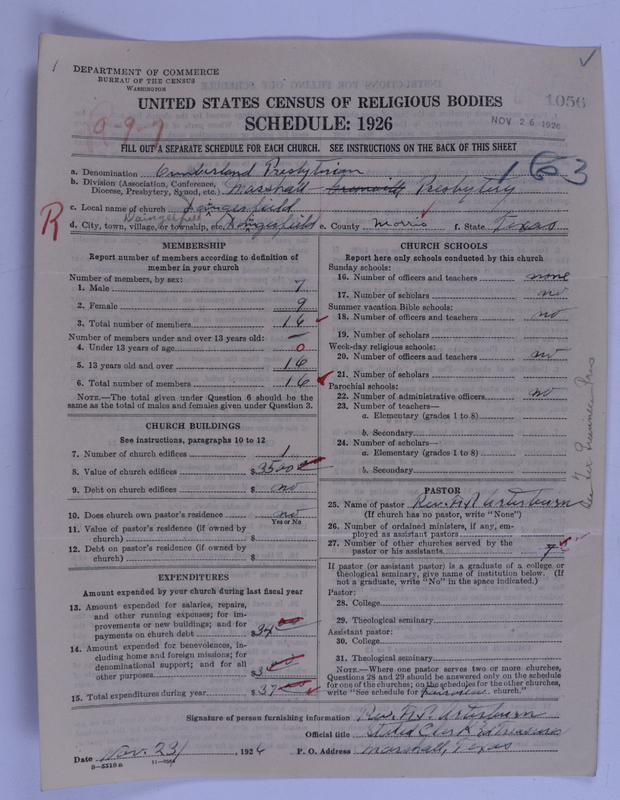 DEPARTMENT OF COMMERCE
BUREAU OF THE CENSUS
WASHINGTON
UNITED STATES CENSUS OF RELIGIOUS BODIES
SCHEDULE: 1926
1056
NOV 26 1926
9-9-7
FILL OUT A SEPARATE SCHEDULE FOR EACH CHURCH. SEE INSTRUCTIONS ON THE BACK OF THIS SHEET
a. Denomination Cumberland Presbyterian
b. Division (Association, Conference, Diocese, Presbytery, Synod, etc.) Marshall Presbytery
163
c. Local name of church Daingerfield
R
d. City, town, village, or township, etc. Daingerfield e. County Morris f. State Texas
MEMBERSHIP
Report number of members according to definition of
member in your church
Number of members, by sex:
1. Male 7
2. Female 9
3. Total number of members 16
Number of members under and over 13 years old:
4. Under 13 years of age 0
5. 13 years old and over 16
6. Total number of members 16
NOTE.—The total given under Question 6 should be
same as the total of males and females given under Question 3.
CHURCH BUILDINGS
See instructions, paragraphs 10 to 12
7. Number of church edifices 1
8. Value of church edifices $3500 00
9. Debt on church edifices $ no
10. Does church own pastor's residence no
Yes or No
11. Value of pastor's residence (if owned by
church) $
12. Debt on pastor's residence (if owned by
church) $
EXPENDITURES
Amount expended by your church during last fiscal year
13. Amount expended for salaries, repairs,
and other running expenses; for im-
provements or new buildings; and for
payments on church debt $34
14. Amount expended for benevolences, in-
cluding home and foreign missions; for
denominational support; and for all
other purposes $3 00
15. Total expenditures during year $37
CHURCH SCHOOLS
Report here only schools conducted by this church
Sunday schools:
16. Number of officers and teachers none
17. Number of scholars no
Summer vacation Bible schools:
18. Number of officers and teachers no
19. Number of scholars
Week-day religious schools:
20. Number of officers and teachers no
21. Number of scholars
Parochial schools:
22. Number of administrative officers no
23. Number of teachers—
a. Elementary (grades 1 to 8)
b. Secondary
24. Number of scholars—
a. Elementary (grades 1 to 8)
b. Secondary
PASTOR
25. Name of pastor Rev.
(If church has no pastor, write "None")
26. Number of ordained ministers, if any, em-
ployed as assistant pastors
27. Number of other churches served by the
pastor or his assistants 7
If pastor (or assistant pastor) is a graduate of a college or
theological seminary, give name of institution below. (If
not a graduate, write "No" in the space indicated.)
Pastor:
28. College
29. Theological seminary
Assistant pastor:
30. College
31. Theological seminary
NOTE.—Where one pastor serves two or more churches,
Questions 28 and 29 should be answered only on the schedule
for one of the churches; on the schedules for the other churches,
write "See schedule for church."
Signature of person furnishing information Rev.
Official title Stated Clerk
Date Nov. 23 1926 P. O. Address Marshall, Texas